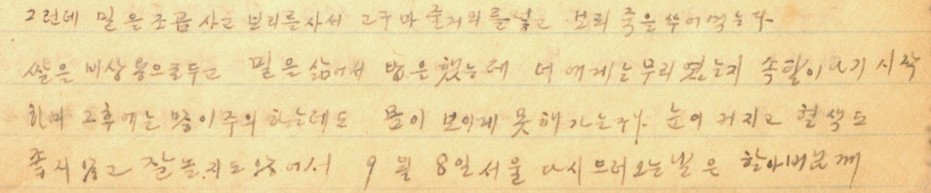 그런데 밀은 조곰 사고 보리를 사서 고구마 줄거리를 넣고 보리 죽을 쑤어 먹는다.
쌀은 비상용으로 두고 밀은 삶어서 밥은 했는데 너에게는 무리였는지 속탈이 나기 시작
한다 그후에는 많이 주의 하는데도 몸이 보이게 못해가는구나. 눈이 커지고 혈색도
좋지 않고 잘 놀지도 않어서 9월 8일 서울 다시 드러오는 날은 할아버님께